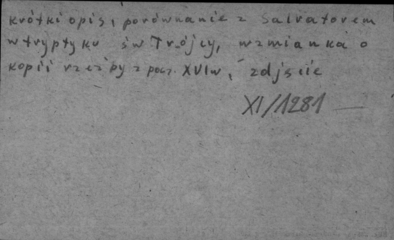 krótki opis, porównanie z Salvatorem
w tryptyku św Trójcy, wzmianka o
kopii rzeźby z pocz. XVI w, zdjęcie
XI/1281